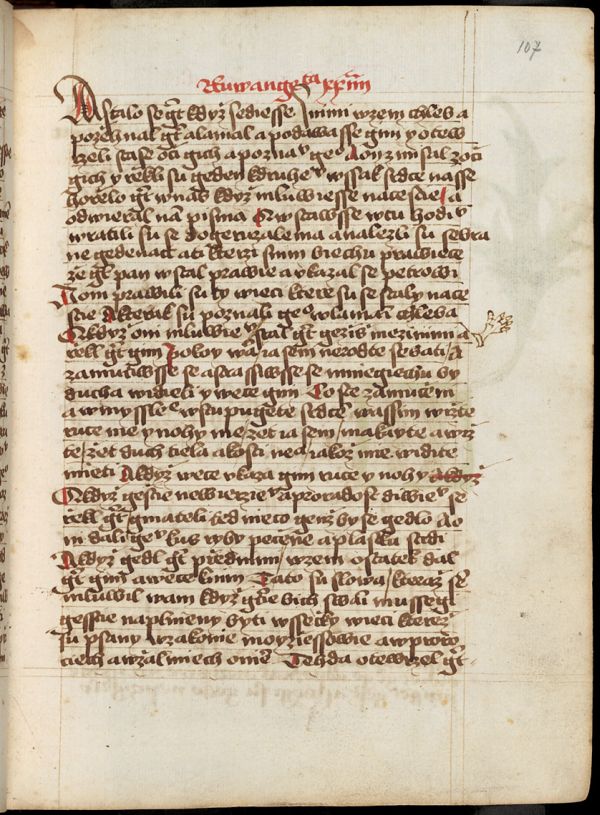 107
A stalo se gt kdyz sediesse s nimi wzem chleb a
pozehnal gt a lamal a podawasse gim y otew
rzeli su se oci gich a poznau geo A on zmisal z oci
gich y rzekli su geden k druhe u wssak srdce nasse
horzelo gt w nas kdyz mluwiesse na cestie a
odwieral nam pisma A wstawsse w tu hodiu
wratili su se do geruzalema a nalezli su sebra
ne gedenact a ti kterzi s nimi biechu prawiece
ze gt pan wstal prawie a vkazal se petrowi
A oni prawili su ty wieci ktere su se staly na ce
stie A kterak su poznali geo w lamani chleba
A kdyz oni mluwie u stal gt gezis mezi nimi a
rzekl gt gim Pokoy wam ia sem nerodte se bati A
zamutiwsse se a strassiwsse se mniegiechu by
ducha widieli y wece gim Co ste zamuceni
a mysslee wstupugete w srdce wassim wizte
ruce me y nohy me zet ia sem makayte a wiz
te zet duch tiela a kosti nea iakoz mie widite
mieti A kdyz wece vkaza gim ruce y nohy
A kdyz gesscie newierzieu a pro radost diwieu se
rzekl gt gmateli sed nieco genz by se gedlo A o
ni dali geu kus ryby pecene a plastu strdi
A kdyz gedl gt przed nimi wzem ostatek dal
gt gim a wece k nim Tato su slowa kteraz sem
mluwil wam kdyz gsie bich s wami mussegi
gesscie naplnieny byti wssecky wieci kterez
su psany w zakonie moyziessowie a w proro
ciech a w zalmiech o mie Tehda otewrzel gt